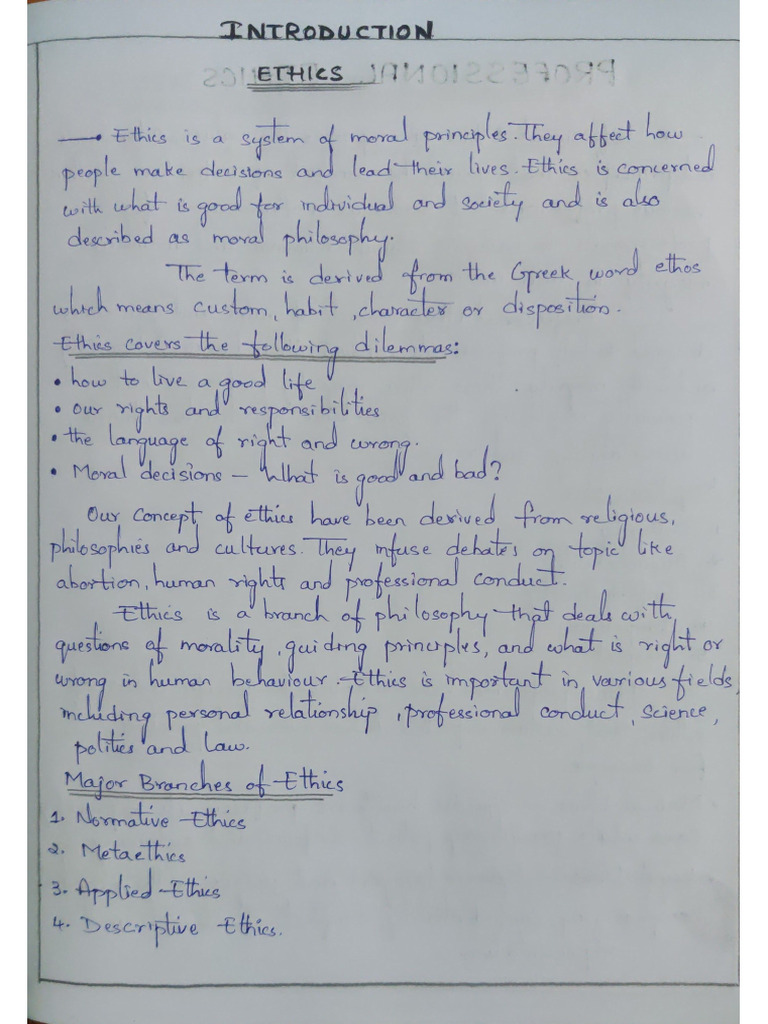 INTRODUCTION
ETHICS
Ethics is a system of moral principles. They affect how
people make decisions and lead their lives. Ethics is concerned
with what is good for individual and society and is also
described as moral philosophy.
The term is derived from the Greek word ethos
which means custom, habit, character or disposition.
Ethics covers the following dilemmas:
• how to live a good life
• our rights and responsibilities
• the language of right and wrong.
• Moral decisions – What is good and bad?
Our concept of ethics have been derived from religious,
philosophies and cultures. They infuse debates on topic like
abortion, human rights and professional conduct.
Ethics is a branch of philosophy that deals with
questions of morality, guiding principles, and what is right or
wrong in human behaviour. Ethics is important in various fields
including personal relationship, professional conduct, science,
politics and law.
Major Branches of Ethics
1. Normative Ethics
2. Metaethics
3. Applied Ethics
4. Descriptive Ethics.